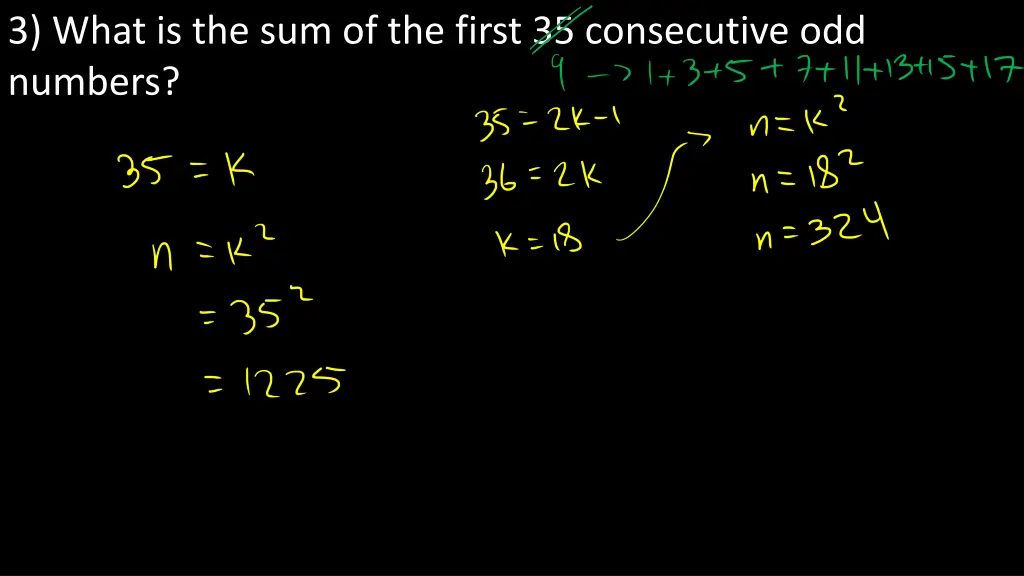 3) What is the sum of the first 35 consecutive odd
numbers?
9 -> 1+3+5+7+11+13+15+17
35 = K
n = K²
= 35²
= 1225
35 = 2K-1
36 = 2K
K = 18
n = K²
n = 18²
n = 324